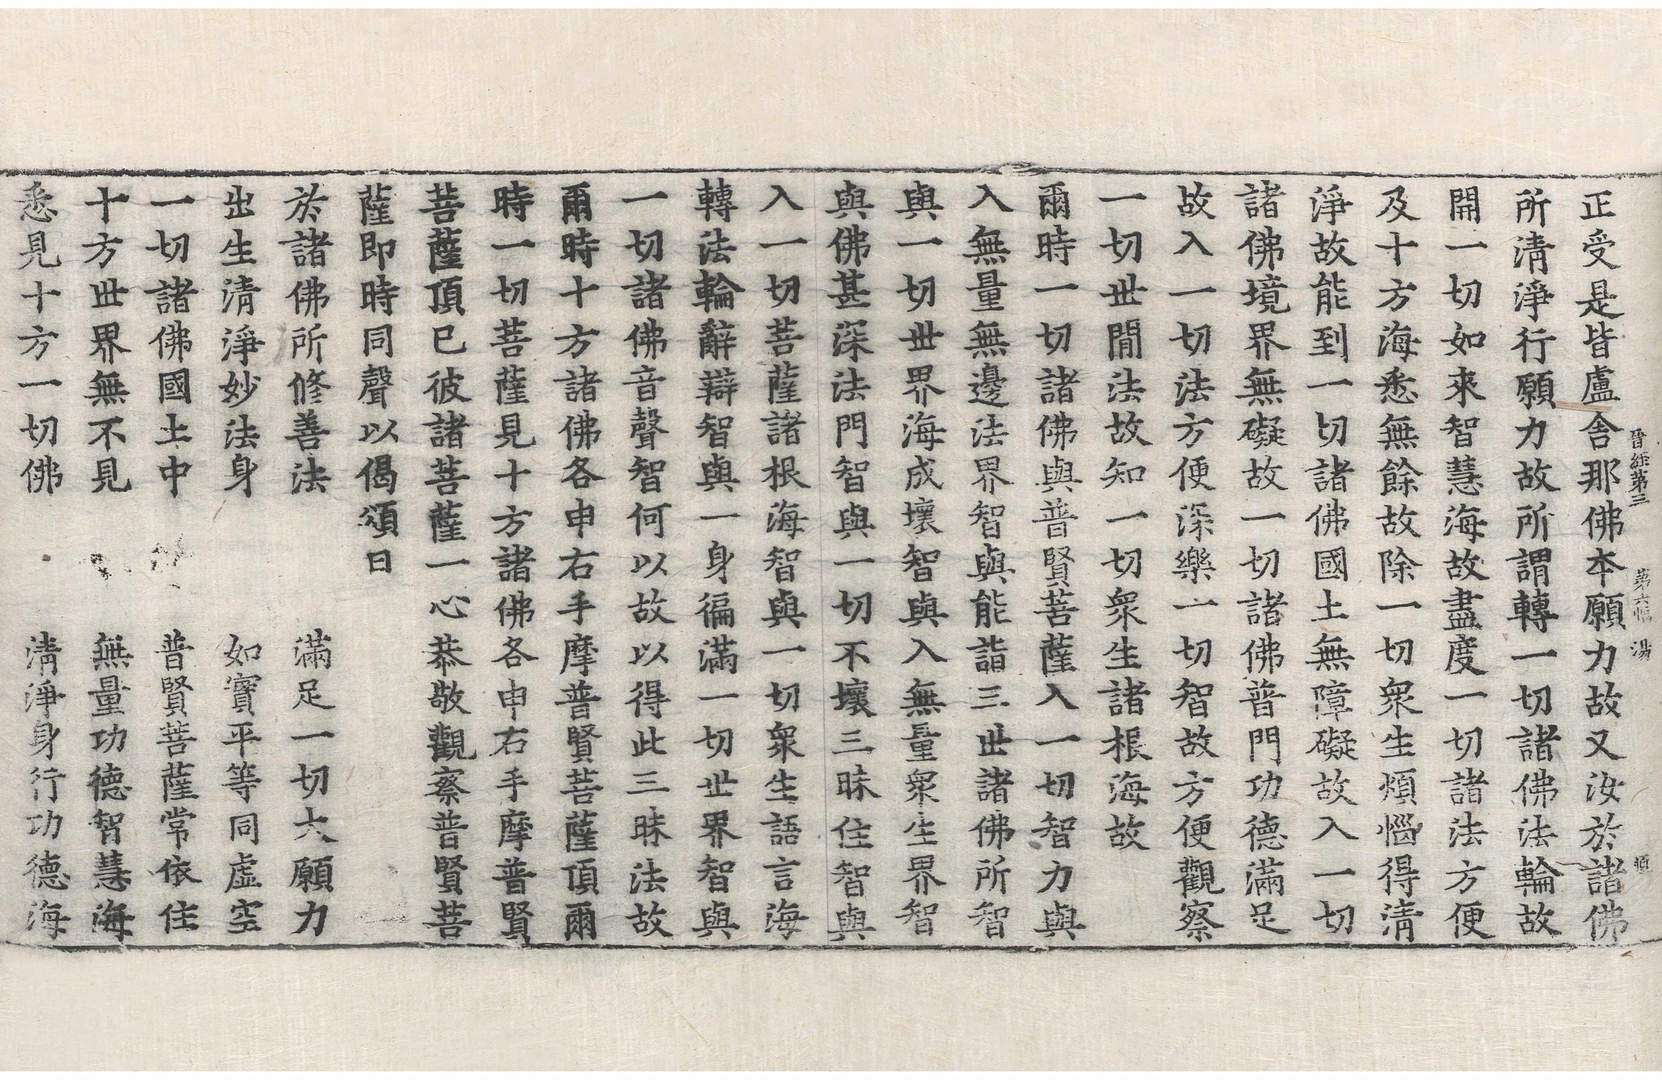 晉經第三　第六幅　湯　傾
正受是皆盧舍那佛本願力故又汝於諸佛
所清淨行願力故所謂轉一切諸佛法輪故
開一切如來智慧海故盡度一切諸法方便
及十方海悉無餘故除一切衆生煩惱得清
淨故能到一切諸佛國土無障礙故入一切
諸佛境界無礙故一切諸佛普門功德滿足
故入一切法方便深樂一切智故方便觀察
一切世間法故知一切衆生諸根海故
爾時一切諸佛與普賢菩薩入一切智力與
入無量無邊法界智與能詣三世諸佛所智
與一切世界海成壞智與入無量衆生界智
與佛甚深法門智與一切不壞三昧住智與
入一切菩薩諸根海智與一切衆生語言海
轉法輪辭辯智與一身徧滿一切世界智與
一切諸佛音聲智何以故以得此三昧法故
爾時十方諸佛各申右手摩普賢菩薩頂爾
時一切菩薩見十方諸佛各申右手摩普賢
菩薩頂已彼諸菩薩一心恭敬觀察普賢菩
薩即時同聲以偈頌曰
於諸佛所修善法　滿足一切大願力
出生清淨妙法身　如實平等同虛空
一切諸佛國土中　普賢菩薩常依住
十方世界無不見　無量功德智慧海
悉見十方一切佛　清淨身行功德海